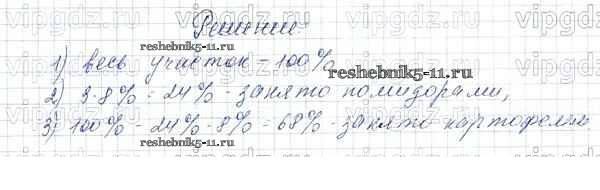 Решение:
1) весь участок - 100%
2) 3·8% = 24% - занято помидорами,
3) 100% - 24% - 8% = 68% - занято картофелем.
vipgdz.ru
reshebnik5-11.ru
reshebnik5-11.ru
reshebnik5-11.ru